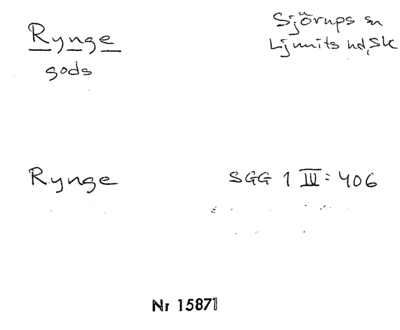 Rynge
gods
Sjörups sn
Ljunits hd, Sk
Rynge
SGG 1 III: 406
Nr 15871